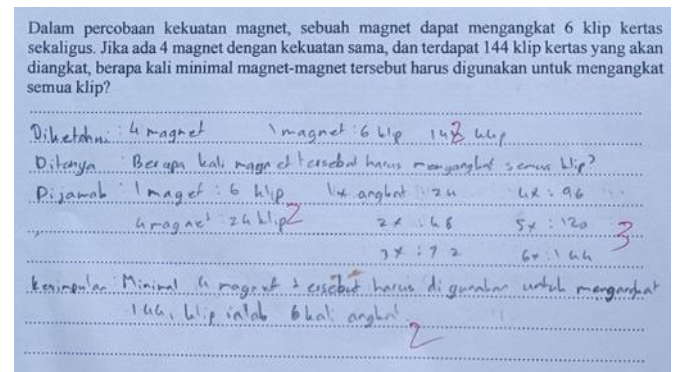 Dalam percobaan kekuatan magnet, sebuah magnet dapat mengangkat 6 klip kertas
sekaligus. Jika ada 4 magnet dengan kekuatan sama, dan terdapat 144 klip kertas yang akan
diangkat, berapa kali minimal magnet-magnet tersebut harus digunakan untuk mengangkat
semua klip?
Diketahui : 4 magnet 1 magnet : 6 klip klip
Ditanya Berapa kali magnet tersebut harus mengangkat semua klip?
Dijawab : 1 maget : 6 klip 1x angkat : 24 4x : 96
4 magnet : 24 klip 2 2x : 48 5x : 120 3
3x : 72 6x : 144
kesimpulan : Minimal 4 magnet tersebut harus digunakan untuk mengangkat
144, klip ialah 6 kali angkat.
2